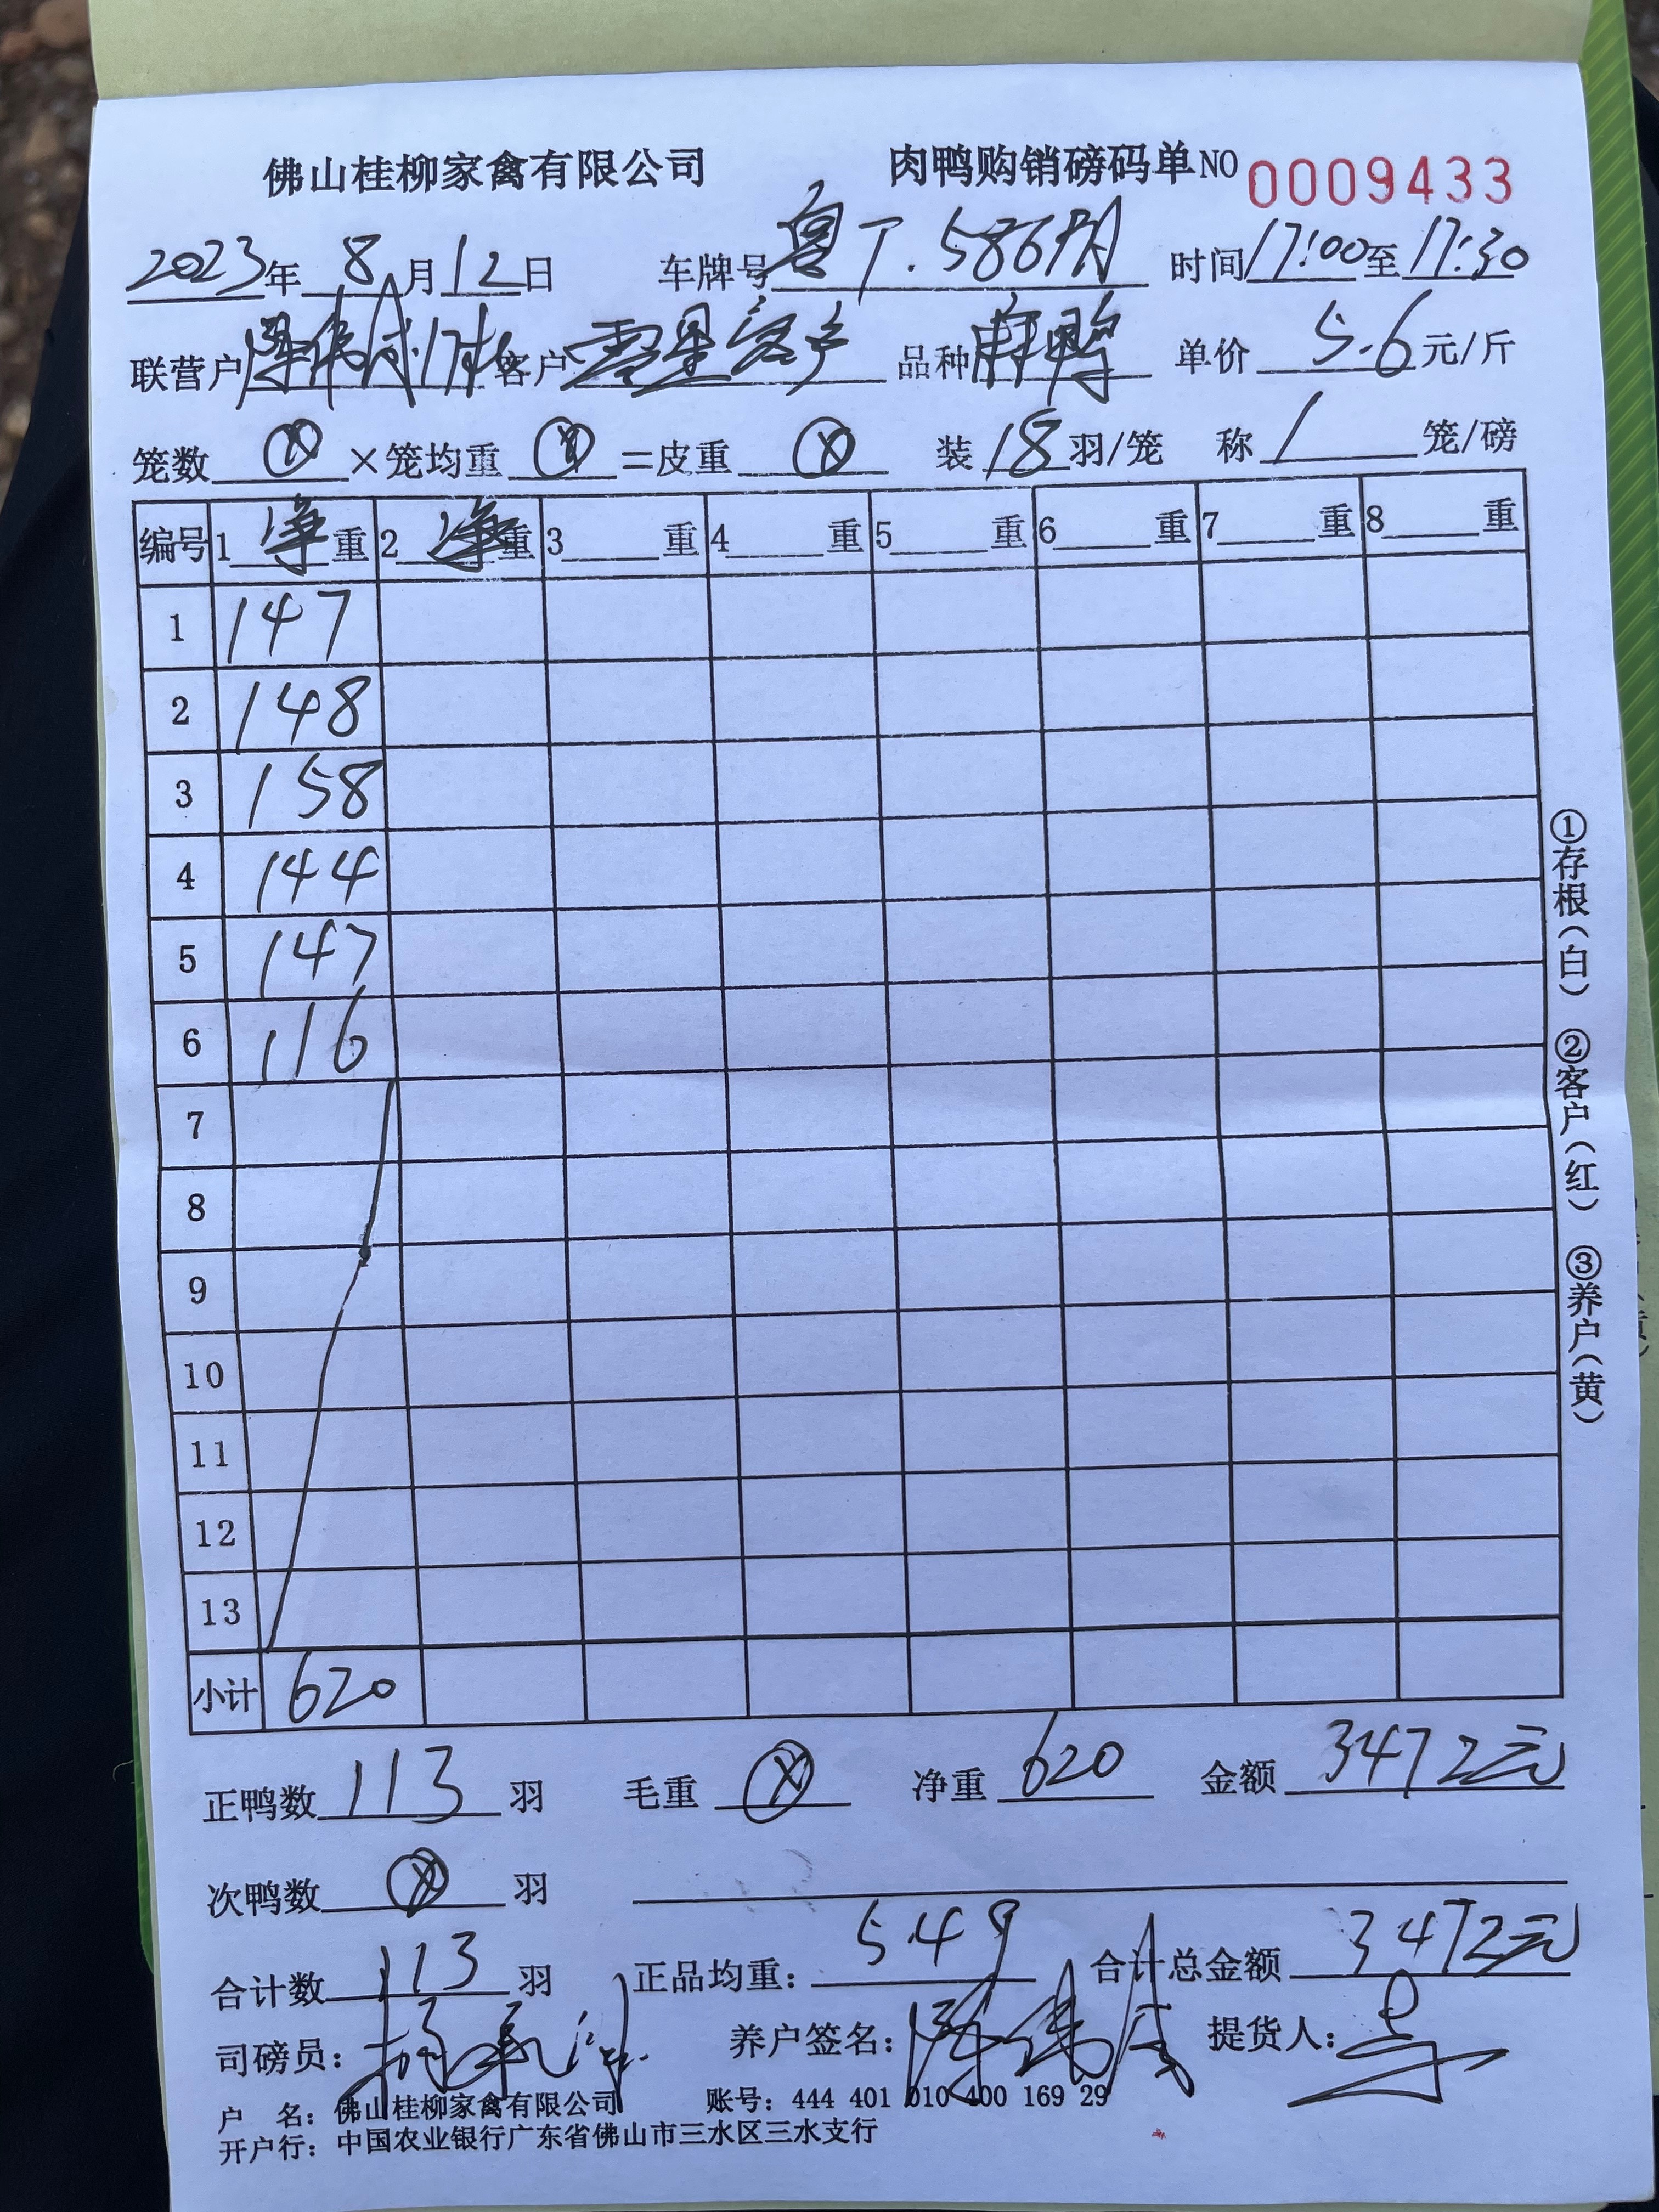 佛山桂柳家禽有限公司 肉鸭购销磅码单NO 0009433
2023年 8月12日 车牌号 粤T.586 时间17:00至17:30
联营户 客户 零星客户 品种 麻鸭 单价 5.6元/斤
笼数 ⊗ ×笼均重 ⊗ =皮重 ⊗ 装18羽/笼 称1笼/磅
编号 1净重 2 重 3 重 4 重 5 重 6 重 7 重 8 重
1 147
2 148
3 158
4 144
5 147
6 116
7
8
9
10
11
12
13
小计 620
正鸭数 113 羽 毛重 ⊗ 净重 620 金额 3472元
次鸭数 ⊗ 羽
合计数 113 羽 正品均重: 5.49 合计总金额 3472元
司磅员: 养户签名: 提货人:
户 名: 佛山桂柳家禽有限公司 账号: 444 401 010 400 169 29
开户行: 中国农业银行广东省佛山市三水区三水支行
①存根(白) ②客户(红) ③养户(黄)